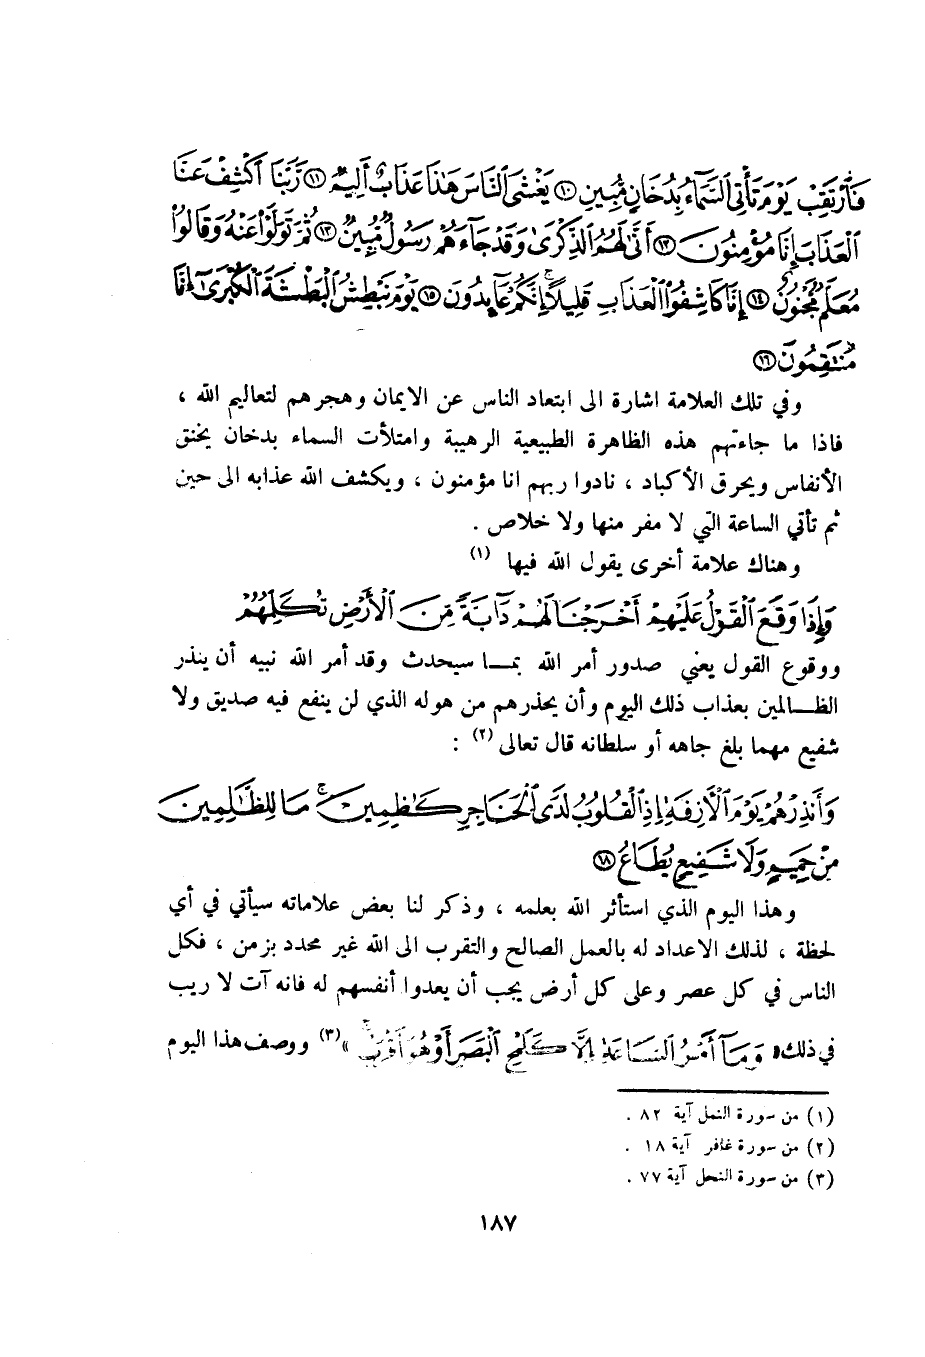 فَٱرْتَقِبْ يَوْمَ تَأْتِى ٱلسَّمَآءُ بِدُخَانٍ مُّبِينٍ ۝١٠ يَغْشَى ٱلنَّاسَ هَٰذَا عَذَابٌ أَلِيمٌ ۝١١ رَّبَّنَا ٱكْشِفْ عَنَّا
ٱلْعَذَابَ إِنَّا مُؤْمِنُونَ ۝١٢ أَنَّىٰ لَهُمُ ٱلذِّكْرَىٰ وَقَدْ جَآءَهُمْ رَسُولٌ مُّبِينٌ ۝١٣ ثُمَّ تَوَلَّوْا۟ عَنْهُ وَقَالُوا۟
مُعَلَّمٌ مَّجْنُونٌ ۝١٤ إِنَّا كَاشِفُوا۟ ٱلْعَذَابِ قَلِيلًا ۚ إِنَّكُمْ عَآئِدُونَ ۝١٥ يَوْمَ نَبْطِشُ ٱلْبَطْشَةَ ٱلْكُبْرَىٰٓ إِنَّا
مُنتَقِمُونَ ۝١٦
وفي تلك العلامة اشارة الى ابتعاد الناس عن الايمان وهجرهم لتعاليم الله ،
فاذا ما جاءتهم هذه الظاهرة الطبيعية الرهيبة وامتلأت السماء بدخان يخنق
الأنفاس ويحرق الأكباد ، نادوا ربهم انا مؤمنون ، ويكشف الله عذابه الى حين
ثم تأتي الساعة التي لا مفر منها ولا خلاص .
وهناك علامة أخرى يقول الله فيها (١)
وَإِذَا وَقَعَ ٱلْقَوْلُ عَلَيْهِمْ أَخْرَجْنَا لَهُمْ دَآبَّةً مِّنَ ٱلْأَرْضِ تُكَلِّمُهُمْ
ووقوع القول يعني صدور أمر الله بمـــا سيحدث وقد أمر الله نبيه أن ينذر
الظـــالمين بعذاب ذلك اليوم وأن يحذرهم من هوله الذي لن ينفع فيه صديق ولا
شفيع مهما بلغ جاهه أو سلطانه قال تعالى (٢) :
وَأَنذِرْهُمْ يَوْمَ ٱلْأَزِفَةِ إِذِ ٱلْقُلُوبُ لَدَى ٱلْحَنَاجِرِ كَٰظِمِينَ ۚ مَا لِلظَّٰلِمِينَ
مِنْ حَمِيمٍ وَلَا شَفِيعٍ يُطَاعُ ۝١٨
وهذا اليوم الذي استأثر الله بعلمه ، وذكر لنا بعض علاماته سيأتي في أي
لحظة ، لذلك الاعداد له بالعمل الصالح والتقرب الى الله غير محدد بزمن ، فكل
الناس في كل عصر وعلى كل أرض يجب أن يعدوا أنفسهم له فانه آت لا ريب
في ذلك « وَمَآ أَمْرُ ٱلسَّاعَةِ إِلَّا كَلَمْحِ ٱلْبَصَرِ أَوْ هُوَ أَقْرَبُ ۚ » (٣) ووصف هذا اليوم
(١) من سورة النمل آية ٨٢ .
(٢) من سورة غافر آية ١٨ .
(٣) من سورة النحل آية ٧٧ .
١٨٧